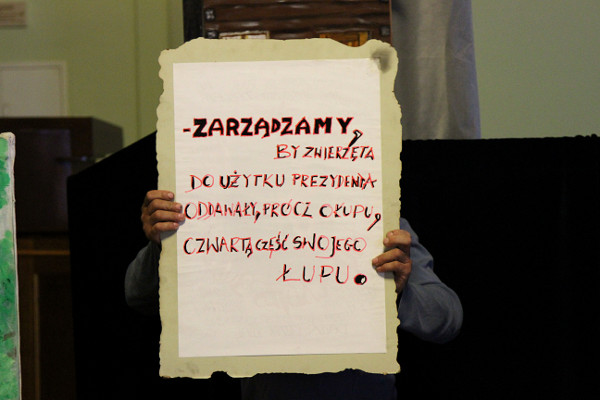 -ZARZĄDZAMY,
BY ZWIERZĘTA
DO UŻYTKU PREZYDENTA
ODDAWAŁY, PRÓCZ OKUPU,
CZWARTĄ CZĘŚĆ SWOJEGO
ŁUPU.